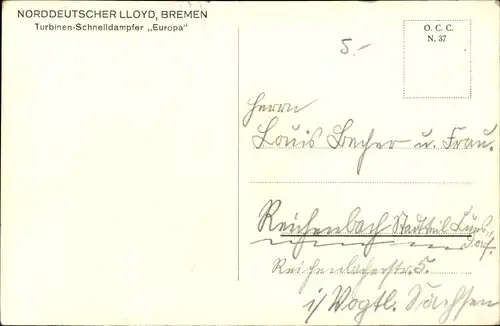 NORDDEUTSCHER LLOYD, BREMEN
Turbinen-Schnelldampfer „Europa"
5.-
O. C. C.
N. 37
Herrn
Louis Becher u. Frau.
Reichenbach Stadtteil Cuns,,
dorf.
Reichenbacherstr. 5.
i/Vogtl. Sachsen